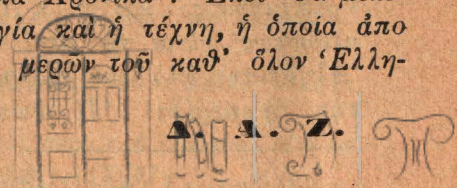 γία καὶ ἡ τέχνη, ἡ ὁποία ἀπο
μερῶν τοῦ καθ' ὅλον Ἑλλη-
Δ. Α. Ζ.